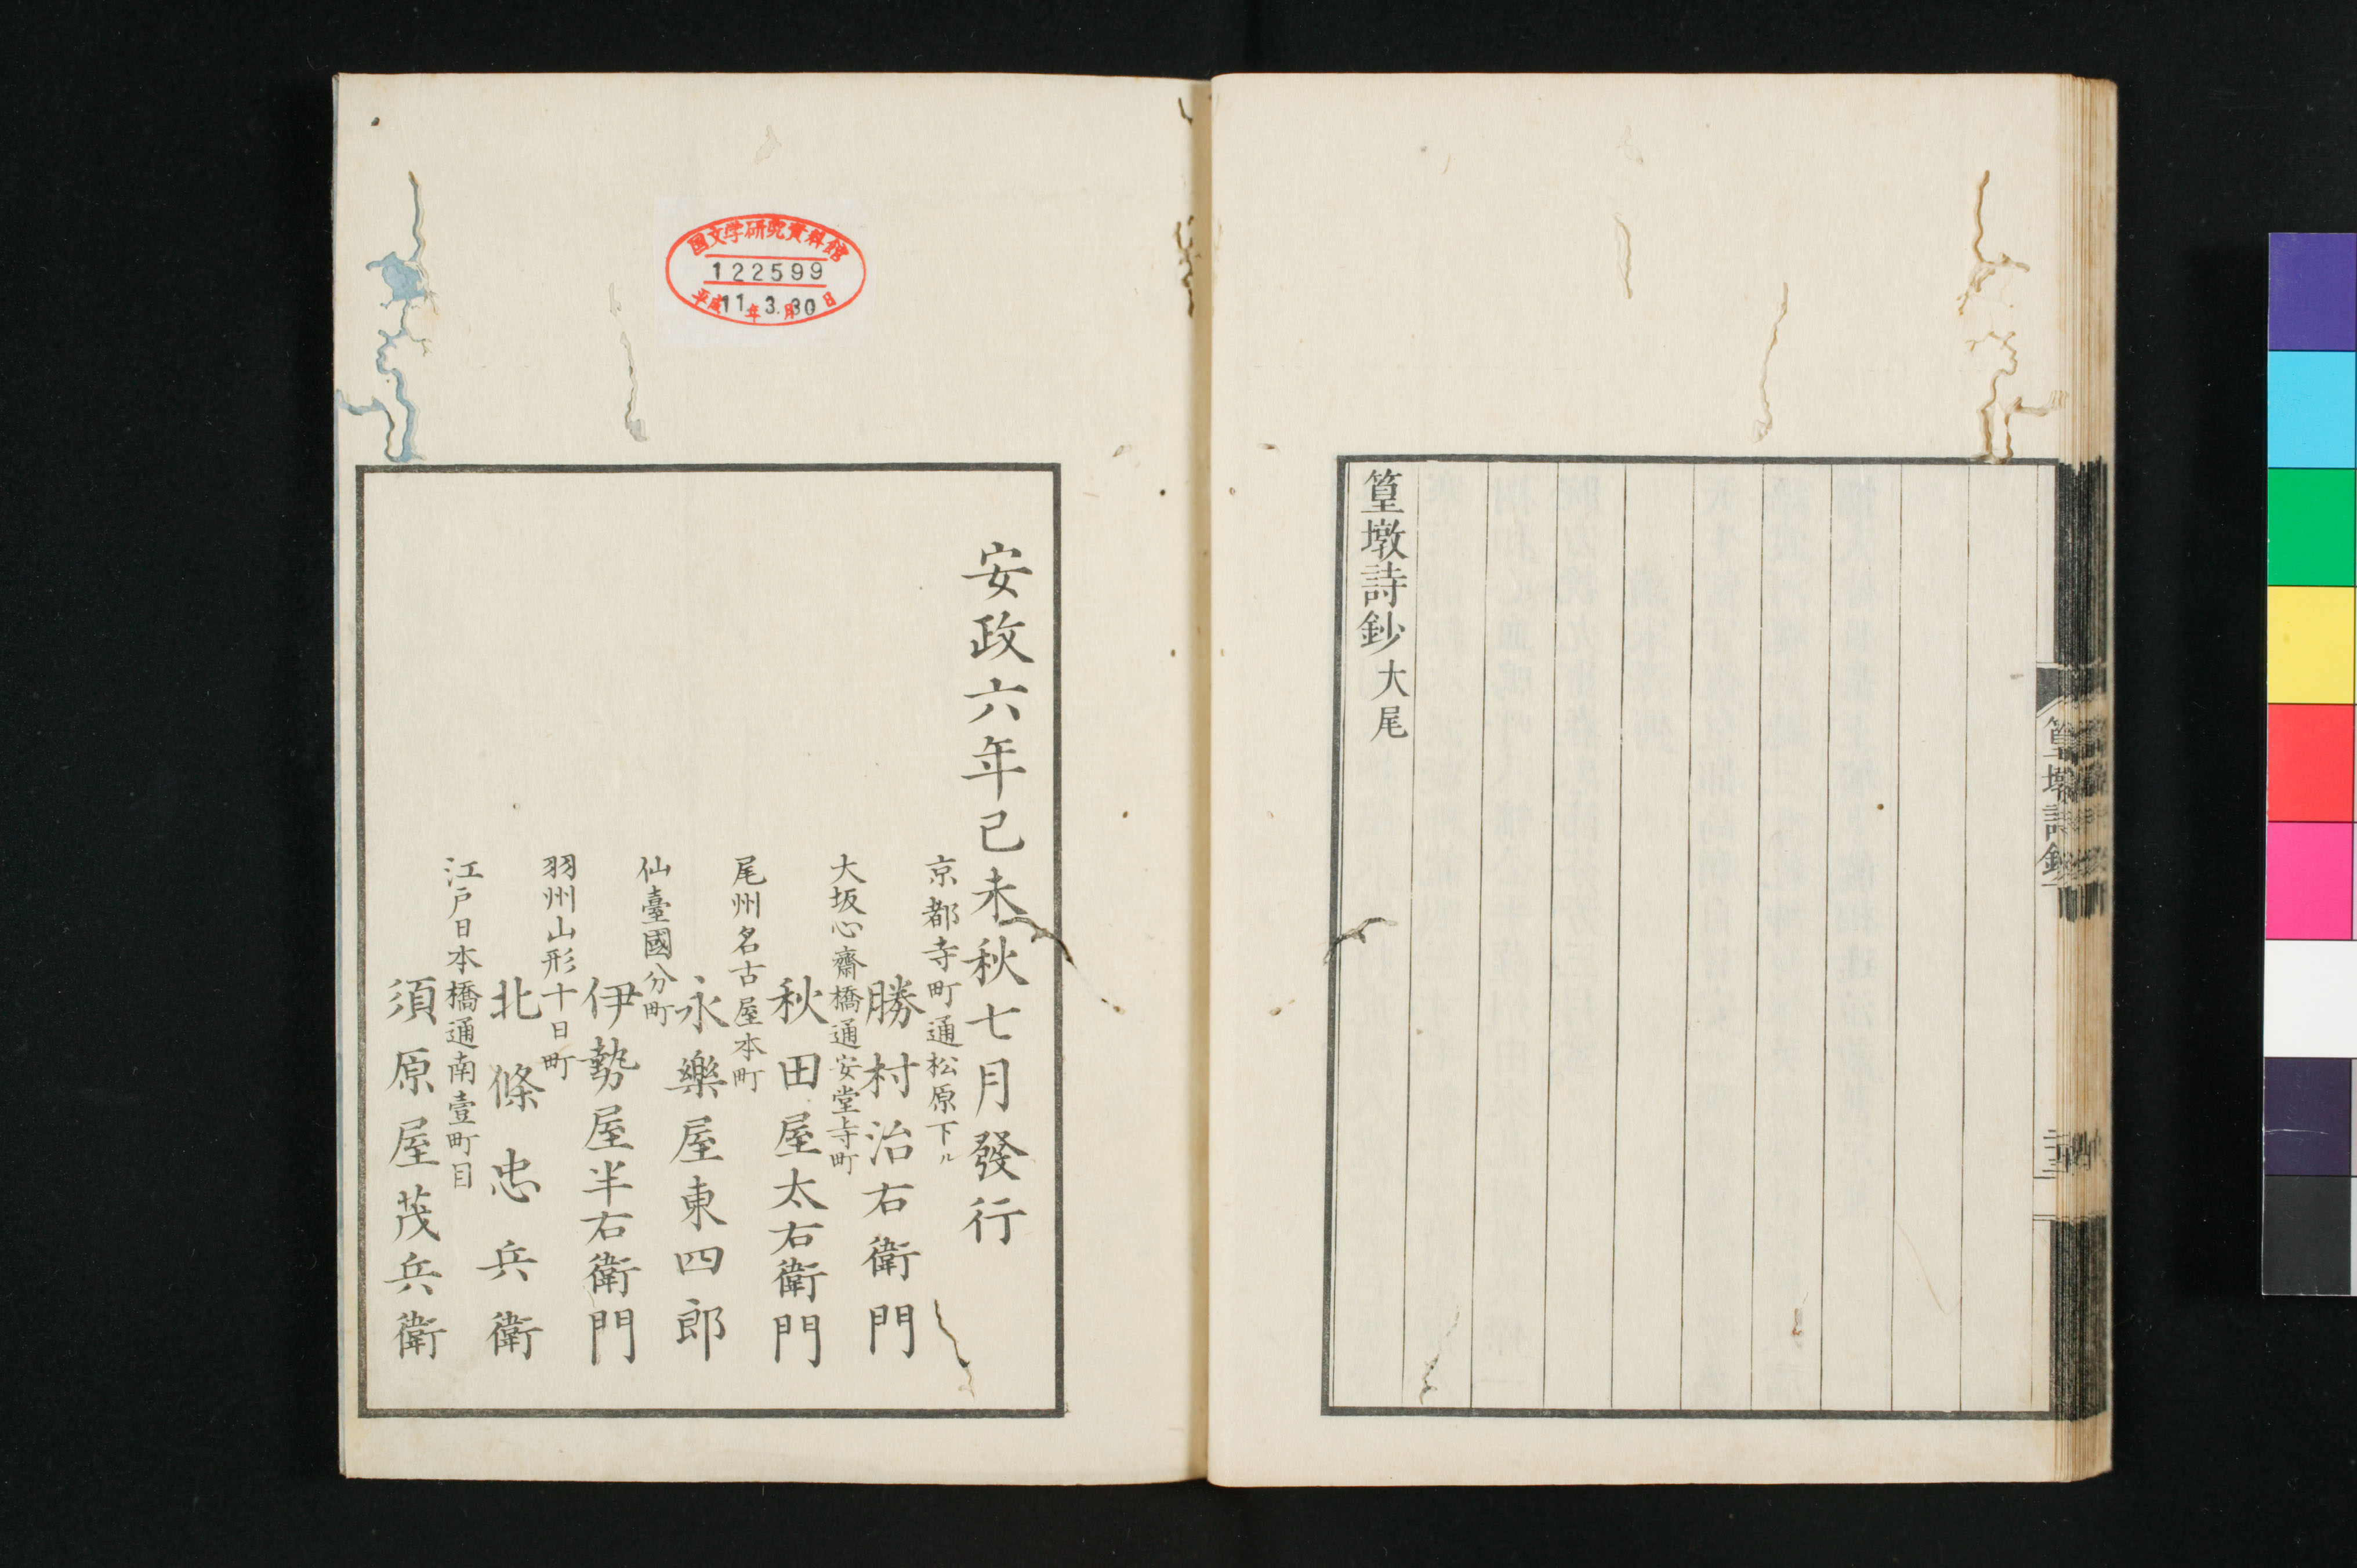 篁墩詩鈔 大尾
篁墩詩鈔
国文学研究資料館
122599
平成11年3月30日
安政六年己未秋七月發行
京都寺町通松原下ル
勝村治右衛門
大坂心齋橋通安堂寺町
秋田屋太右衛門
尾州名古屋本町
永樂屋東四郎
仙臺國分町
伊勢屋半右衛門
羽州山形十日町
北條忠兵衛
江戸日本橋通南壹町目
須原屋茂兵衛